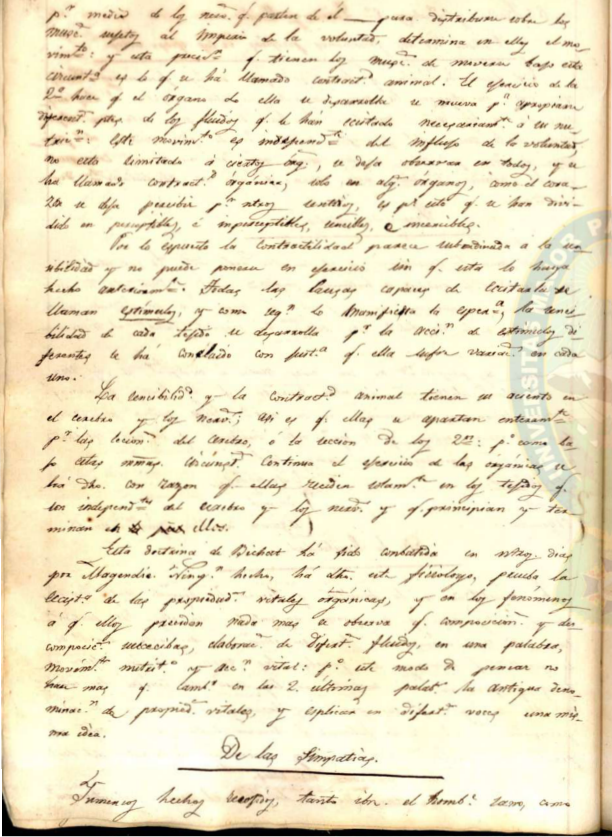 pr. medio de los nerv. q. parten de el — para distribuirse sobre los
musc. sujetos al imperio de la voluntad, determina en ellos el mo-
vimto.: y esta q. tienen los musc. de moverse bajo esta
circunsta. es lo q. se há llamado contracta. animal. El ejercicio de la
2a. hace q. el órgano de ella se desarrolle se mueva pa. apropiarse
diferent. ptes. de los fluidos q. le han ecsitado necesariamte. á su nu-
trición: este movimto. es independte. del influjo de la voluntad,
no está limitado á ciertos órgs., se deja observar en todos, y se
ha llamado contracta. órgánica, solo en algs. órganos, como el cora-
zon se deja percibir pr. ntros. sentidos, es pr. esto q. se han divi-
dido en perceptibles, é imperceptibles, sencibles, e insencibles.
Por lo espuesto la contractilidad parece subordinada a la sen-
sibilidad y no puede ponerse en ejercicio sin q. esta lo haya
hecho anteriormte. Todas las causas capaces de ecsitarla se
llaman estimulos, y como segn. lo manifiesta la espera., la senci-
bilidad de cada tejido se desarrolla pr. la accn. de estimulos di-
ferentes se há concluido con justa. q. ella sufre variacs. en cada
uno.
La sencibilidd. y la contractd. animal tienen su asiento en
el cerebro y los nervs.; asi es q. ellas se apartan enteramte.
pr. las lecions. del cerebro, ó la seccion de los 2os.: po. como ba-
jo estas mmas. circunsts. continua el ejercicio de las órganicas se
há dho. con razon q. ellas reciden solamte. en los tejidos q.
son independtes. del cerebro y los nervs. y q. principian y ter-
minan en ellos.
Esta doctrina de Bichat há sido conbatida en ntros. dias
por Magendie. Ningn. hecho, há dho. este fisiologo, prueba la
ecsista. de las propiedads. vitales órgánicas, y en los fenomenos
á q. ellas presiden nada mas se observa q. composicion y des
composicn. sucecibas, elaboracn. de diferts. fluidos, en una palabra,
movimto. nutrito. y accn. vital: po. este modo de pensar no
hace mas q. cambr. en las 2. últimas palabs. la antigua deno-
minacn. de propieds. vitales, y esplicar en diferts. voces una mis-
ma idea.
De las Simpatias.
hechos recojidos, tanto sbr. el hombe. sano, como